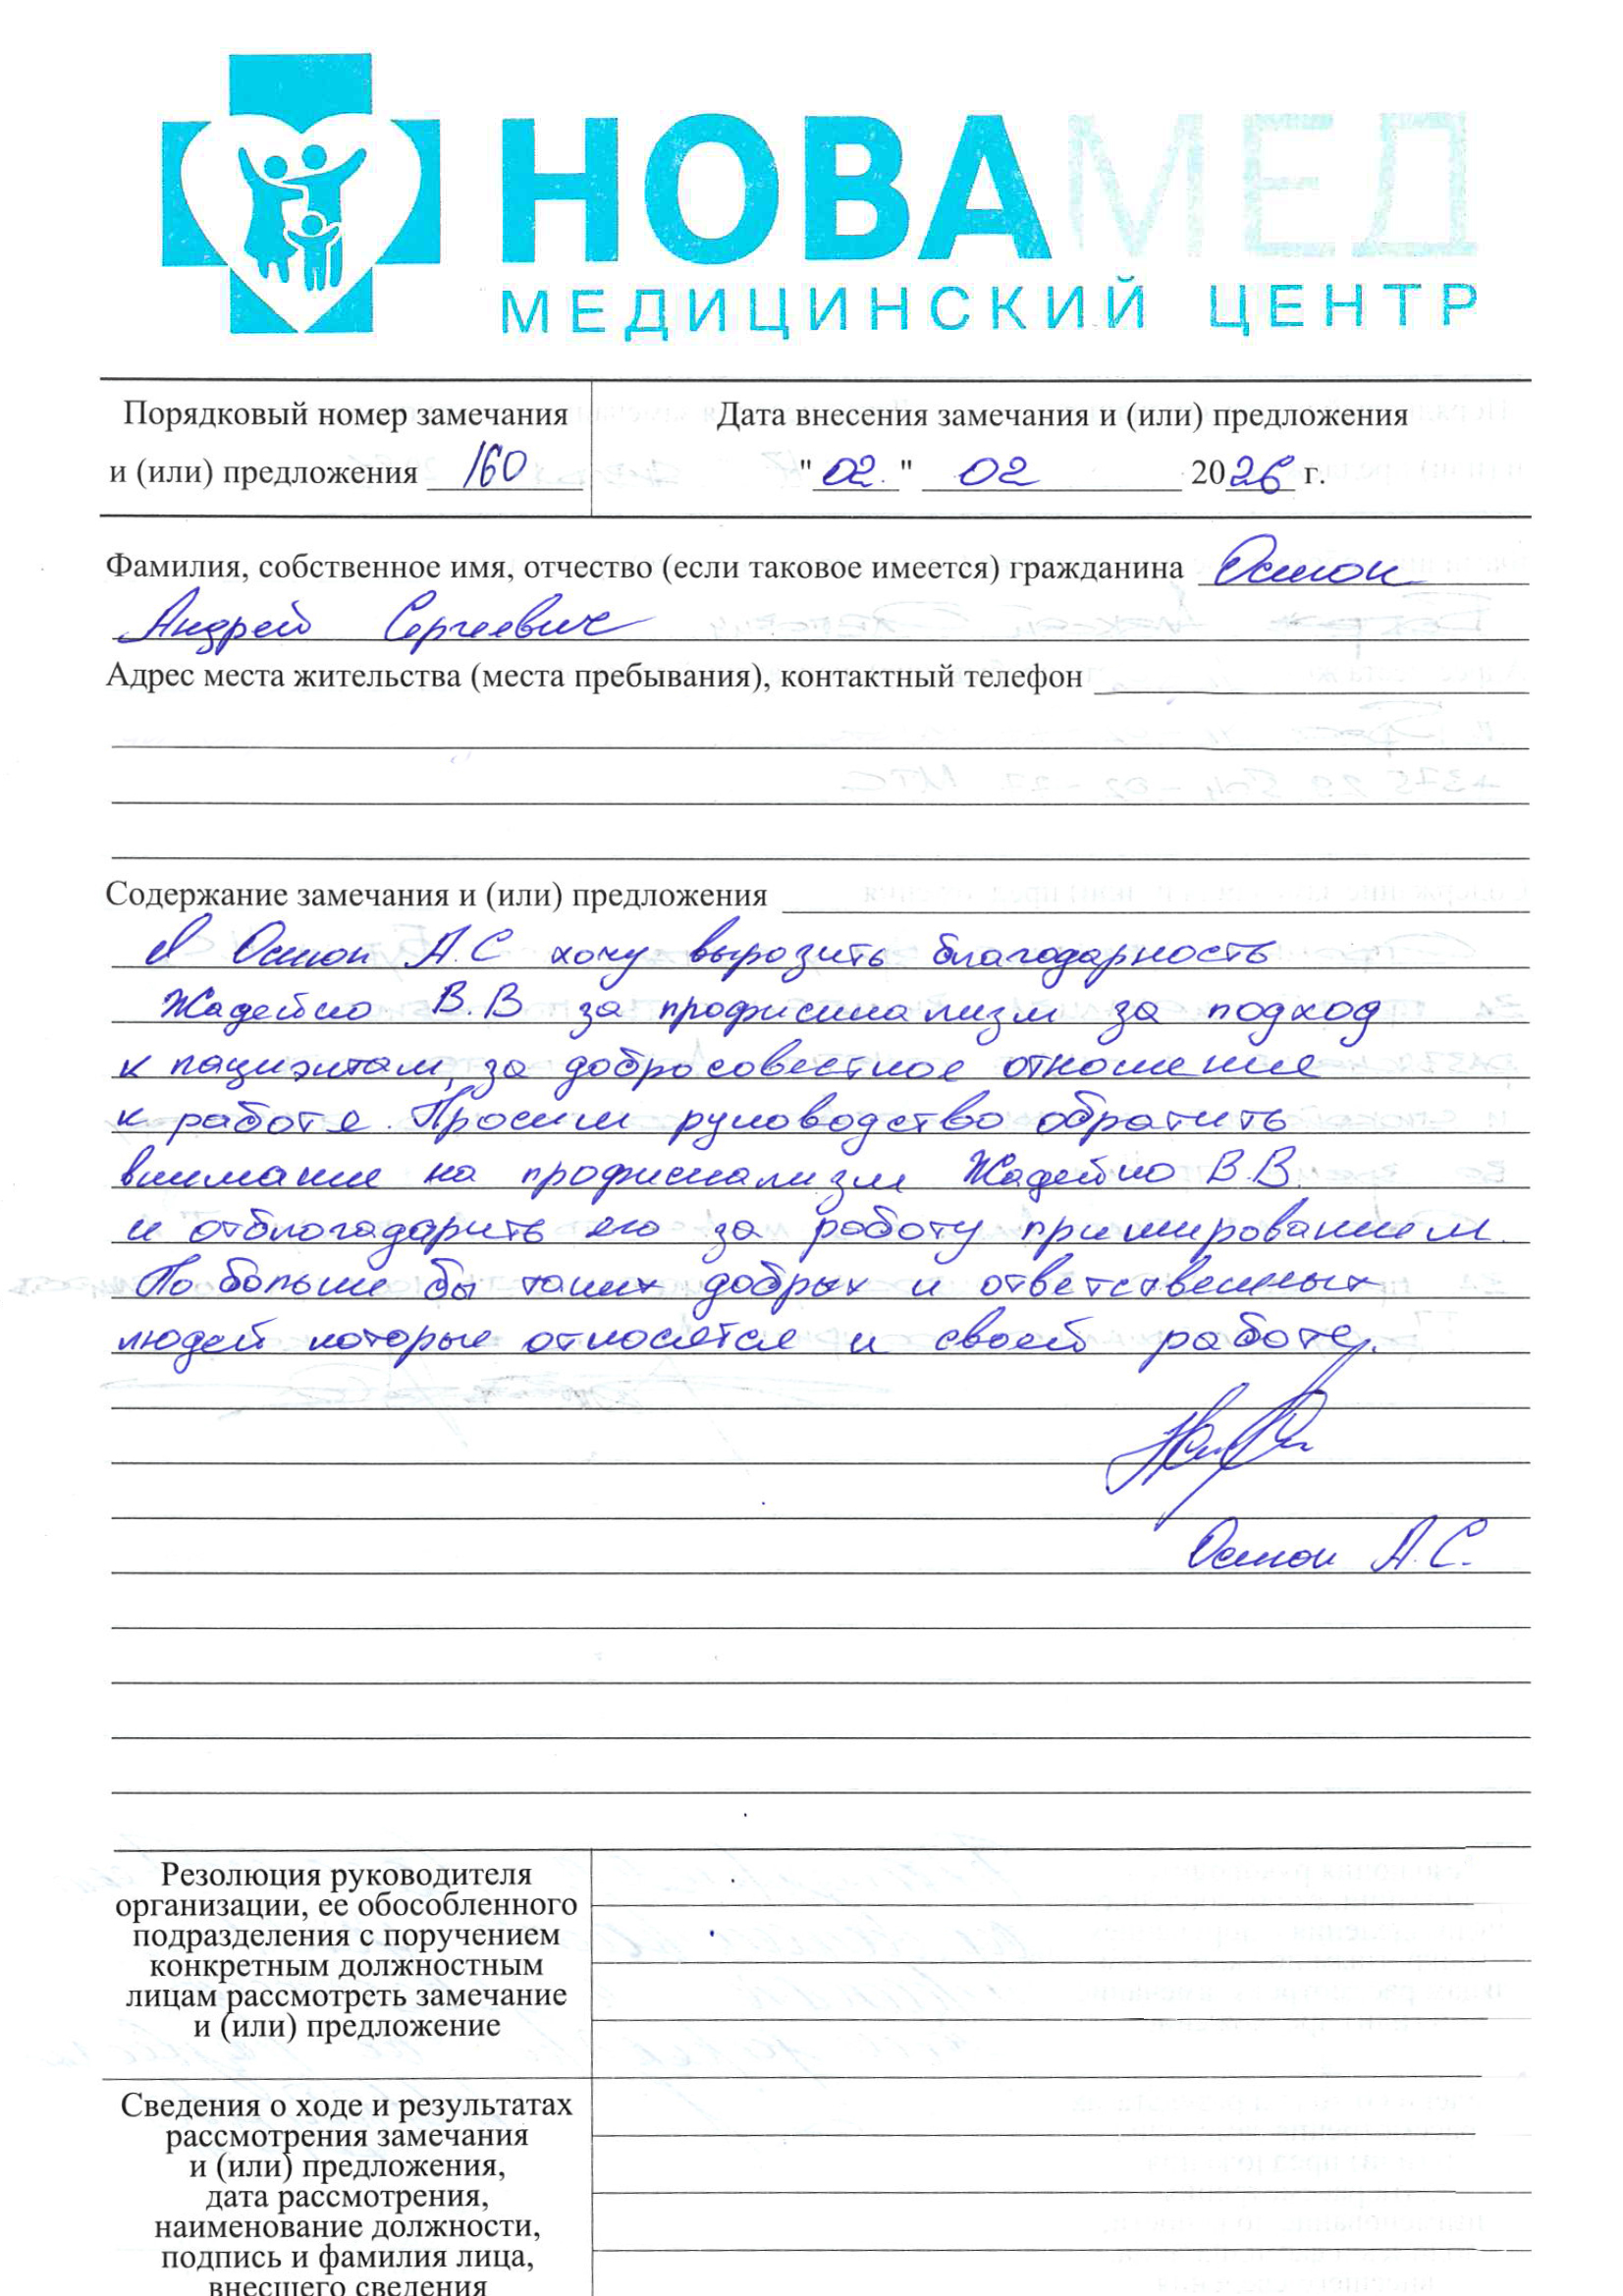 НОВАМЕД
МЕДИЦИНСКИЙ ЦЕНТР
Порядковый номер замечания
и (или) предложения 160
Дата внесения замечания и (или) предложения
"02." 02 2026 г.
Фамилия, собственное имя, отчество (если таковое имеется) гражданина
Андрей Сергеевич
Адрес места жительства (места пребывания), контактный телефон
Содержание замечания и (или) предложения
Я А.С хочу вырозить благодарность
Жадейко В.В за профисинализм за подход
к пациэнтам, за добросовестное отношение
к работе. Просим руководство обратить
внимание на профисианализм Жадейко В.В.
и отблогодарить его за работу примированием.
По больше бы таких добрых и ответственных
людей которые относятся к своей работе.
А.С.
Резолюция руководителя
организации, ее обособленного
подразделения с поручением
конкретным должностным
лицам рассмотреть замечание
и (или) предложение
Сведения о ходе и результатах
рассмотрения замечания
и (или) предложения,
дата рассмотрения,
наименование должности,
подпись и фамилия лица,
внесшего сведения